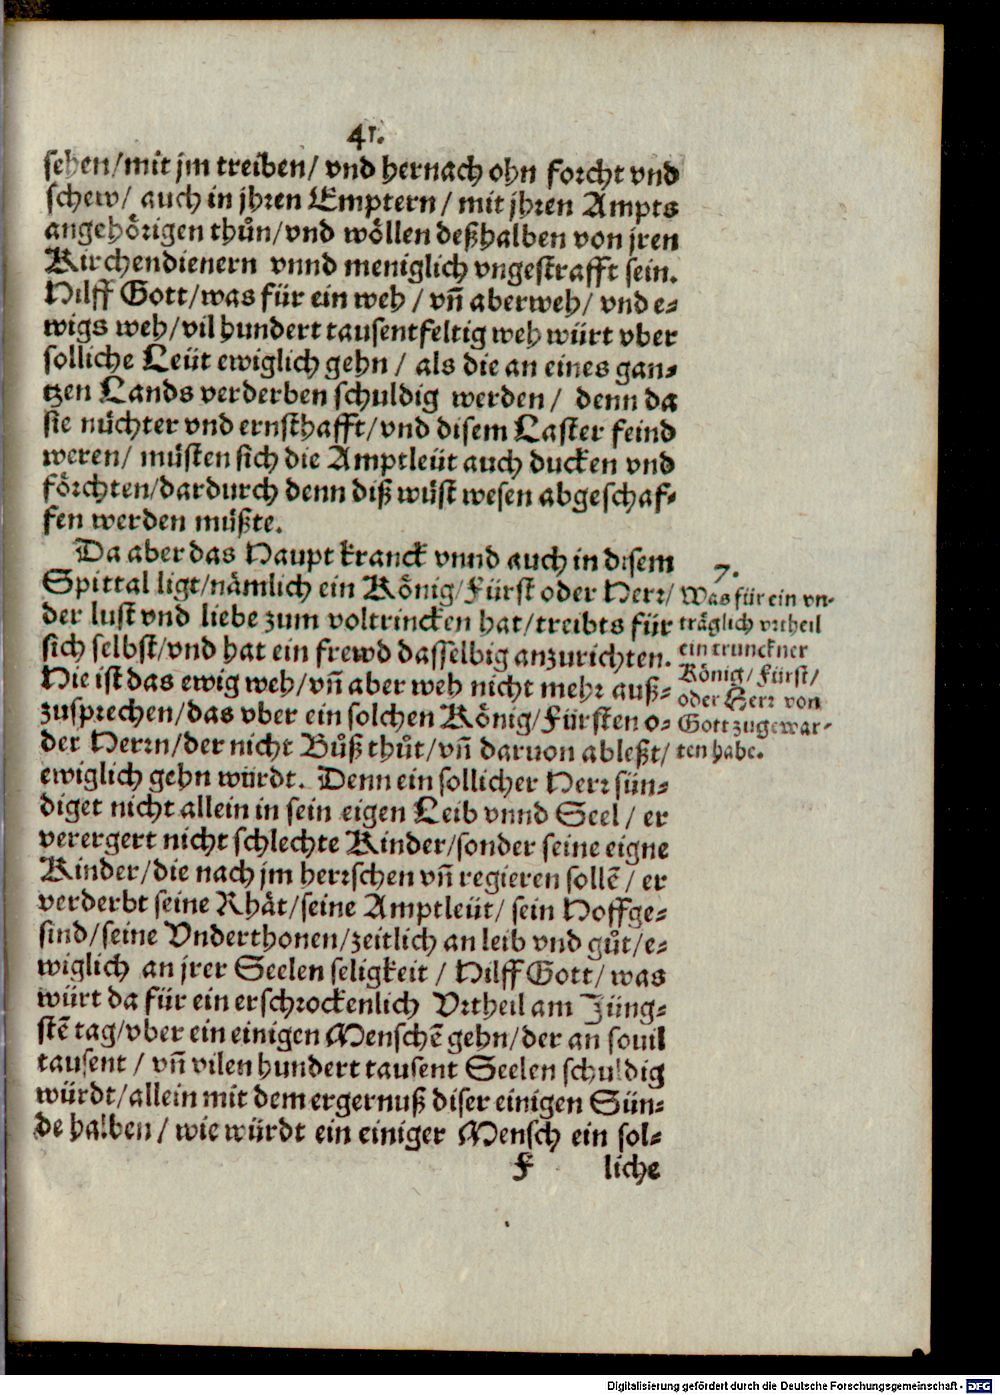 41.
sehen/mit jm treiben/ vnd hernach ohn forcht vnd
schew/ auch in jhren Emptern/ mit jhren Ampts
angehoͤrigen thuͦn/vnd woͤllen deßhalben von jren
Kirchendienern vnnd meniglich vngestrafft sein.
Hilff Gott/was für ein weh/ vñ aberweh/ vnd e⸗
wigs weh/vil hundert tausentfeltig weh würt vber
solliche Leüt ewiglich gehn/ als die an eines gan⸗
tzen Lands verderben schuldig werden/ denn da
sie nüchter vnd ernsthafft/vnd disem Laster feind
weren/ müsten sich die Amptleüt auch ducken vnd
foͤrchten/dardurch denn diß wüst wesen abgeschaf⸗
fen werden müßte.
Da aber das Haupt kranck vnnd auch in disem
Spittal ligt/naͤmlich ein Koͤnig/Fürst oder Herr/
der lust vnd liebe zum voltrincken hat/treibts für
sich selbst/vnd hat ein frewd dasselbig anzurichten.
Hie ist das ewig weh/vñ aber weh nicht mehr auß⸗
zusprechen/das vber ein solchen Koͤnig/Fürsten o⸗
der Herrn/der nicht Buͦß thuͦt/vñ daruon ableßt/
ewiglich gehn würdt. Denn ein sollicher Herr sün⸗
diget nicht allein in sein eigen Leib vnnd Seel/ er
verergert nicht schlechte Kinder/sonder seine eigne
Kinder/die nach jm herrschen vñ regieren sollẽ/ er
verderbt seine Rhaͤt/seine Amptleüt/ sein Hoffge⸗
sind/seine Vnderthonen/zeitlich an leib vnd guͦt/e⸗
wiglich an jrer Seelen seligkeit/ Hilff Gott/ was
würt da für ein erschrockenlich Vrtheil am Jüng⸗
stẽ tag/vber ein einigen Menschẽ gehn/der an souil
tausent/ vñ vilen hundert tausent Seelen schuldig
würdt/allein mit dem ergernuß diser einigen Sün⸗
de halben/ wie würdt ein einiger Mensch ein sol⸗
F liche
7.
Was für ein vn⸗
traͤglich vrtheil
ein trunckner
Koͤnig/ Fürst/
oder Herr von
Gott zugewar⸗
ten habe.
Digitalisierung gefördert durch die Deutsche Forschungsgemeinschaft - DFG